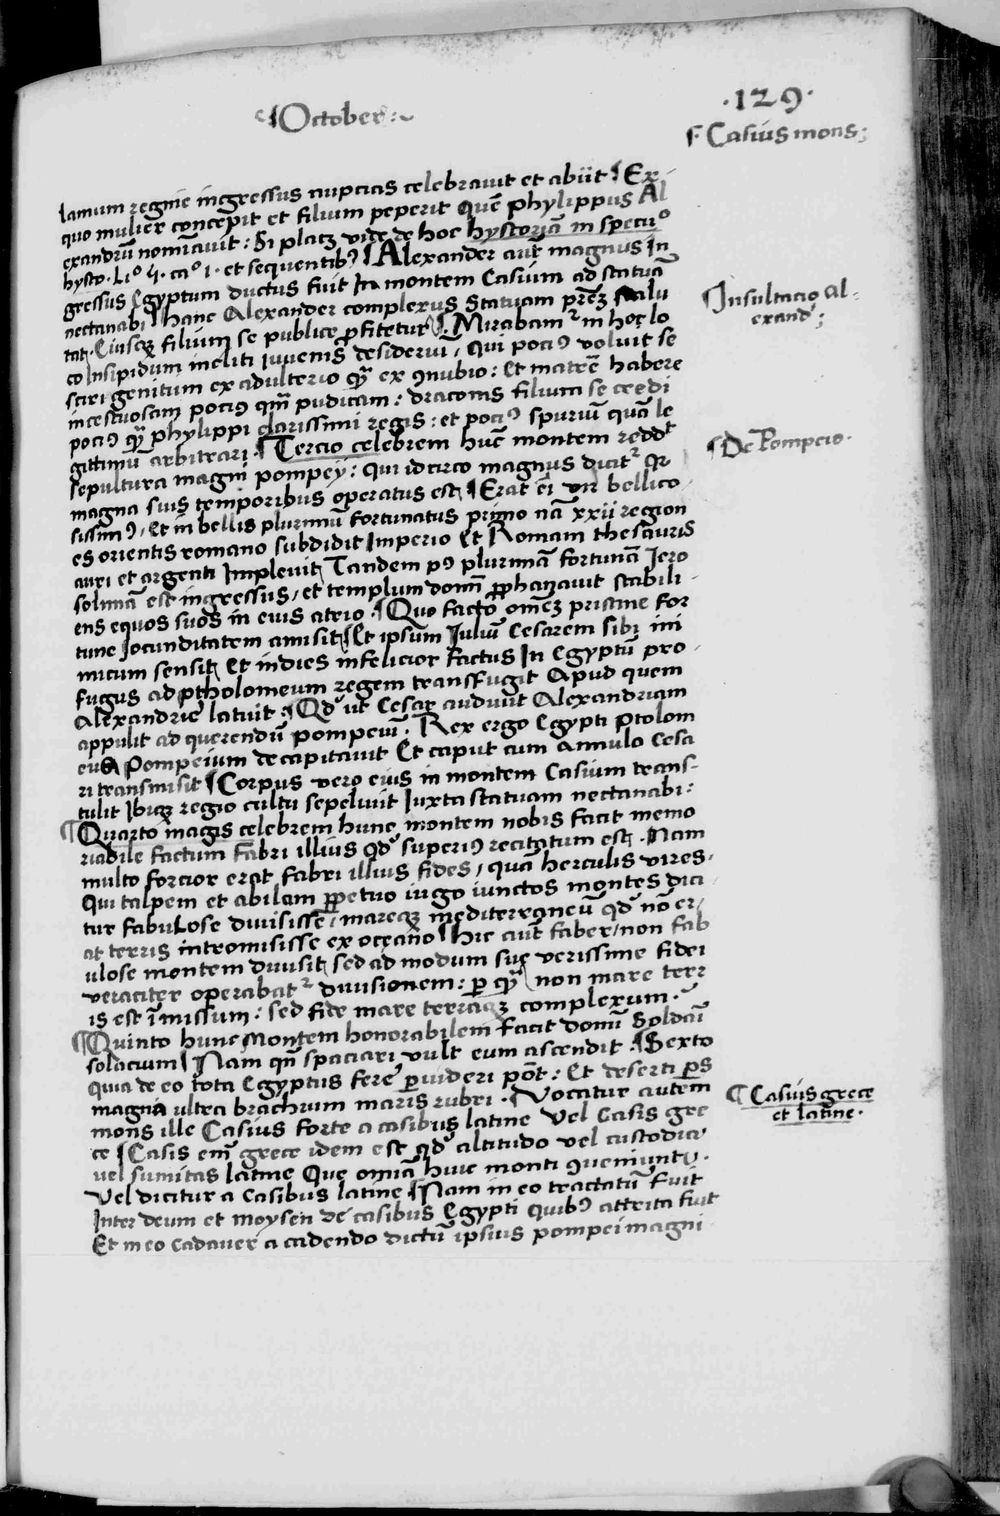 ¶October:~
·129·
¶Casius mons;
lamum regine ingressus nupcias celebravit et abiit ¶Ex
quo mulier concepit et filium peperit Quē phylippus Al
exandrū nominavit: Si placꝫ vide de hoc hystoriā in speculo
hysto. Liº 4. caº 1. et sequentibꝰ ¶Alexander aūt magnus In
gressus Egyptum ductus fuit In montem Casium ad statuā
nectanabi ¶hanc Alexander complexus Statuam prēꝫ salu
tat. Eiusqꝫ filium se publice ꝓfitetur ¶Mirabamr in hoc lo
co Insipidum incliti Iuvenis desideriū, Qui pociꝰ voluit se
sciri genitum ex adulterio qꝫ ex ꝯnubio: Et matrē habere
incestuosam pociꝰ qm̄ pudicam: draconis filium se credi
pociꝰ qꝫ phylippi clarissimi regis: et pociꝰ spuriū quā le
gittimū arbitrari. ¶Tercio celebrem hūc montem reddit
sepultura magni pompey: Qui idcirco magnus dicitr Qr
magna suis temporibus operatus est ¶Erat eī vir bellico
sissimꝰ, Et in bellis plurimū fortunatus primo nā xxii region
es orientis romano subdidit Imperio Et Romam thesauris
auri et argenti Implevit Tandem pꝰ plurimā fortunā Iero
solimā est ingressus, et templum domī ꝓphanavit stabili
ens equos suos in eius atrio. ¶Quo facto omēꝫ pristine for
tune Jocunditatem amisit ¶Et ipsum Iuliū Cesarem sibi ini
micum sensit Et indies infelicior factus In Egyptū pro
fugus ad ptholomeum regem transfugit Apud quem
Alexandrie latuit: ¶Qd ut Cesar audivit Alexandriam
appulit ad querendū pompeiū. Rex ergo Egypti Ptolom
eus Pompeium decapitavit Et caput cum Annulo Cesa
ri transmisit ¶Corpus vero eius in montem Casium trans-
tulit Ibiqꝫ regio cultu sepelivit Iuxta statuam nectanabi:
¶Quarto magis celebrem hunc montem nobis facit memo
riabile factum fabri illius qd superiꝰ recitatum est. Nam
multo forcior erat fabri illius fides, quā herculis vires,
Qui calpem et abilam ꝑpetuo iugo iunctos montes dici
tur fabulose divisissē, mareqꝫ mediterraneū qd nō er
at terris intromisisse ex oceano ¶hic aūt faber, non fab
ulose montem divisit sed ad modum sue verissime fidei
veraciter operabatr divisionem: ꝑ quā non mare terr
is est īmissum: sed fide mare terraqꝫ complexum.
¶Quinto hunc Montem honorabilem facit domū Soldani
solacium Nam qn̄ spaciari vult eum ascendit ¶Sexto
quia de eo tota Egyptus fere ꝑvideri pōt: Et deserti ꝑs
magna ultra brachium maris rubri. ¶Vocatur autem
mons ille Casius forte a casibus latine Vel Casis gre
ce ¶Casis em̄ grece idem est qd altitudo vel custodia
vel sumitas latine Que omīa huic monti ꝯveniunt.
Vel dicitur a Casibus latine ¶Nam in eo tractatū fuit
Inter deum et moysen de casibus Egypti quibꝰ attrita fuit
Et in eo cadaver a cadendo dictū ipsius pompei magni
¶Insultacio al-
exand;
¶De Pompeio.
¶Casius grece
et latine.